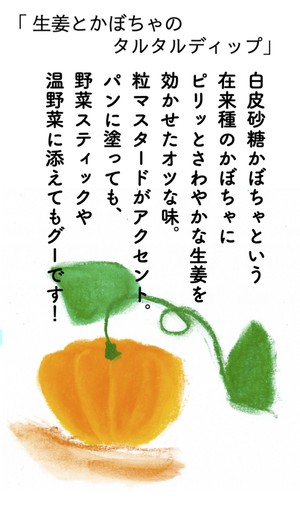 「生姜とかぼちゃの
タルタルディップ」
白皮砂糖かぼちゃという
在来種のかぼちゃに
ピリッとさわやかな生姜を
効かせたオツな味。
粒マスタードがアクセント。
パンに塗っても、
野菜スティックや
温野菜に添えてもグーです！